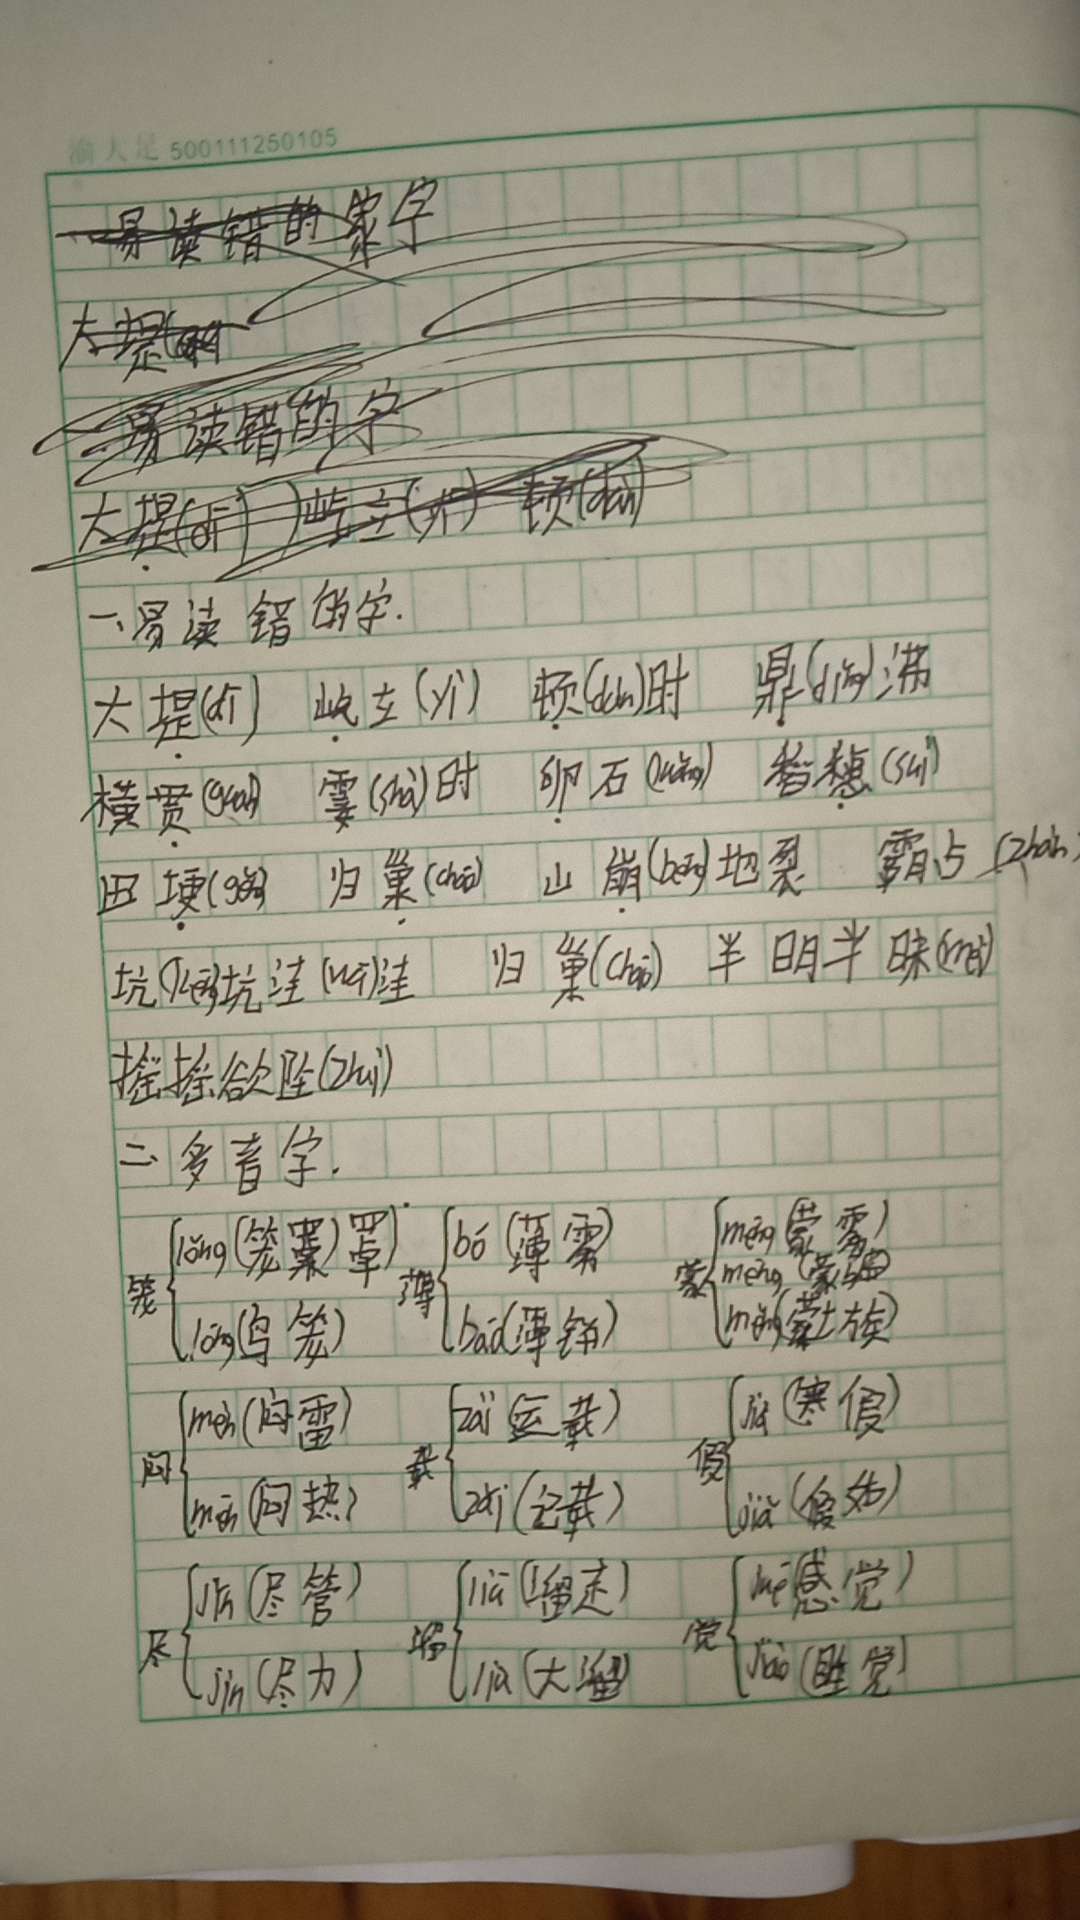 渝大足 500111250105
易读错的字
大堤
易读错的字
大堤(dī) 屹立(yì) 顿(dùn)
一、易读错的字.
大堤(dī) 屹立(yì) 顿(dùn)时 鼎(dǐng)沸
横贯(guàn) 霎(shà)时 卵石(luǎng) 稻穗(suì)
田埂(gěng) 归巢(cháo) 山崩(bēng)地裂 霸占(zhàn)
坑(kēng)坑洼(wā)洼 归巢(cháo) 半明半昧(mèi)
摇摇欲坠(zhuì)
二、多音字.
笼 lǒng(笼罩) lóng(鸟笼) 薄 bó(薄雾) báo(薄饼) 蒙 méng(蒙雾) mēng(蒙骗) měng(蒙古族)
闷 mèn(闷雷) mēn(闷热) 载 zài(运载) zǎi(记载) 假 jià(寒假) jiǎ(假如)
尽 jǐn(尽管) jìn(尽力) 溜 liū(溜走) liù(大溜) 觉 jué(感觉) jiào(睡觉)